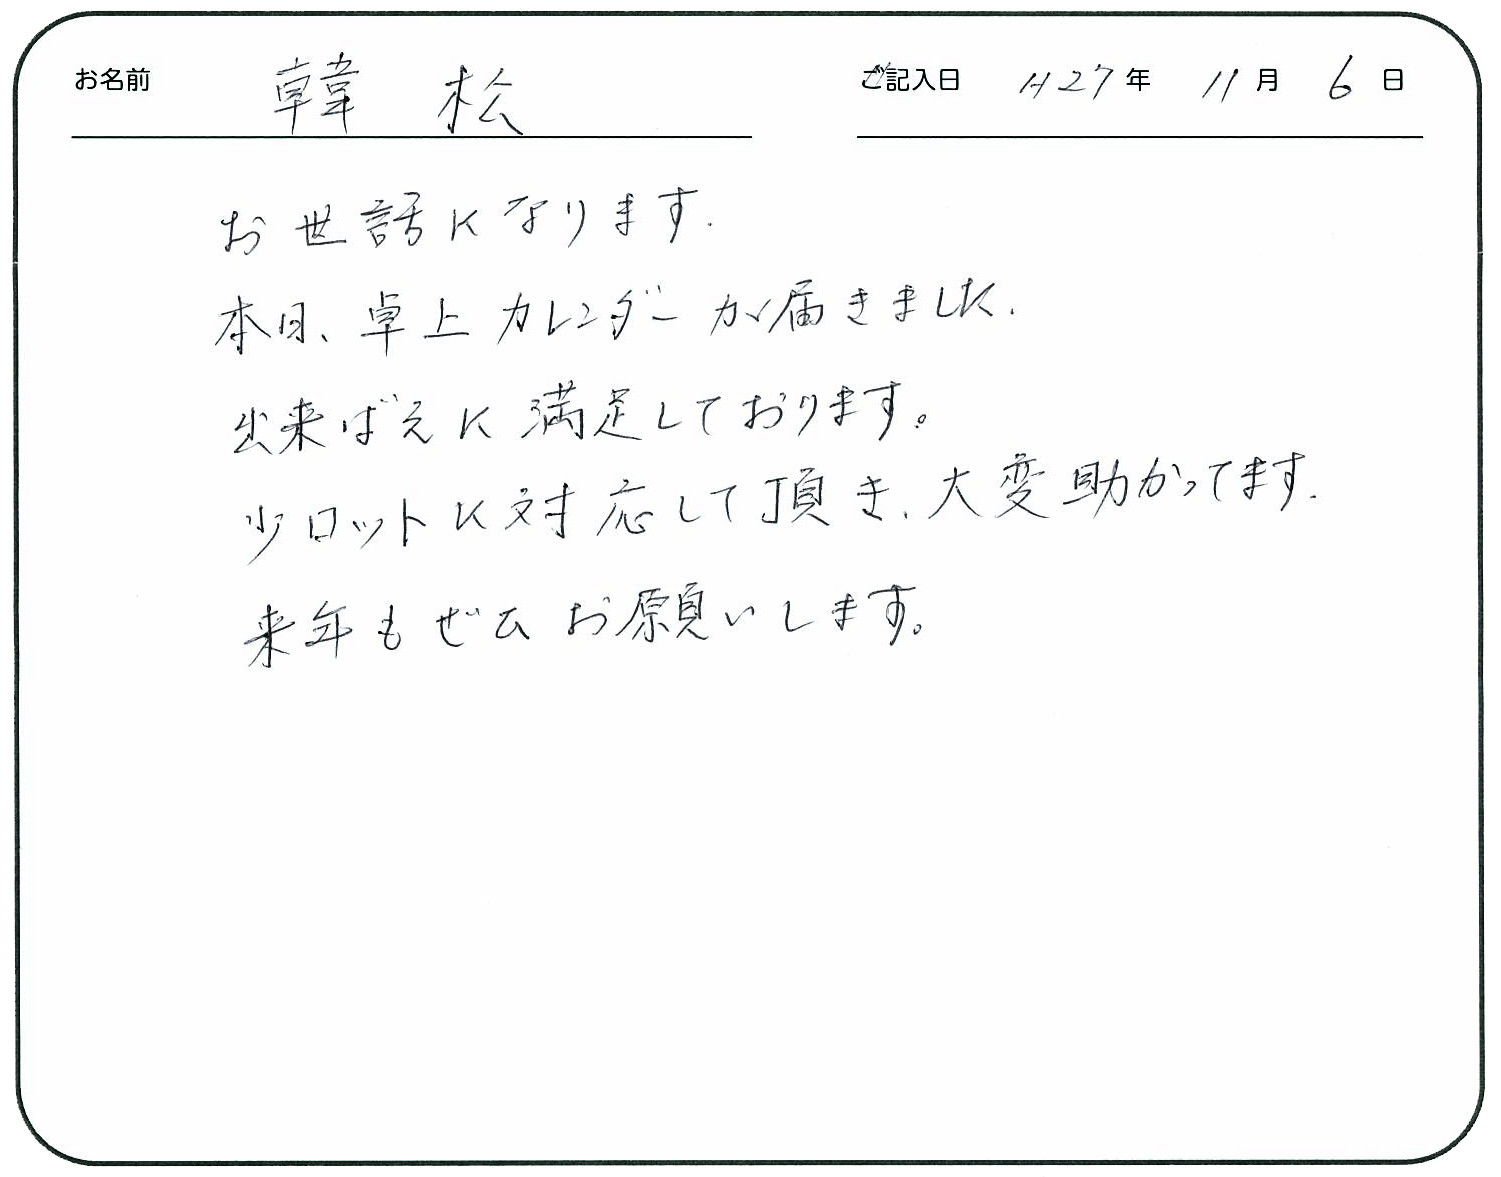 お名前 韓 松 ご記入日 H27年 11月 6日
お世話になります.
本日、卓上カレンダーが届きました.
出来ばえに満足しております。
少ロットに対応して頂き、大変助かってます.
来年もぜひお願いします。